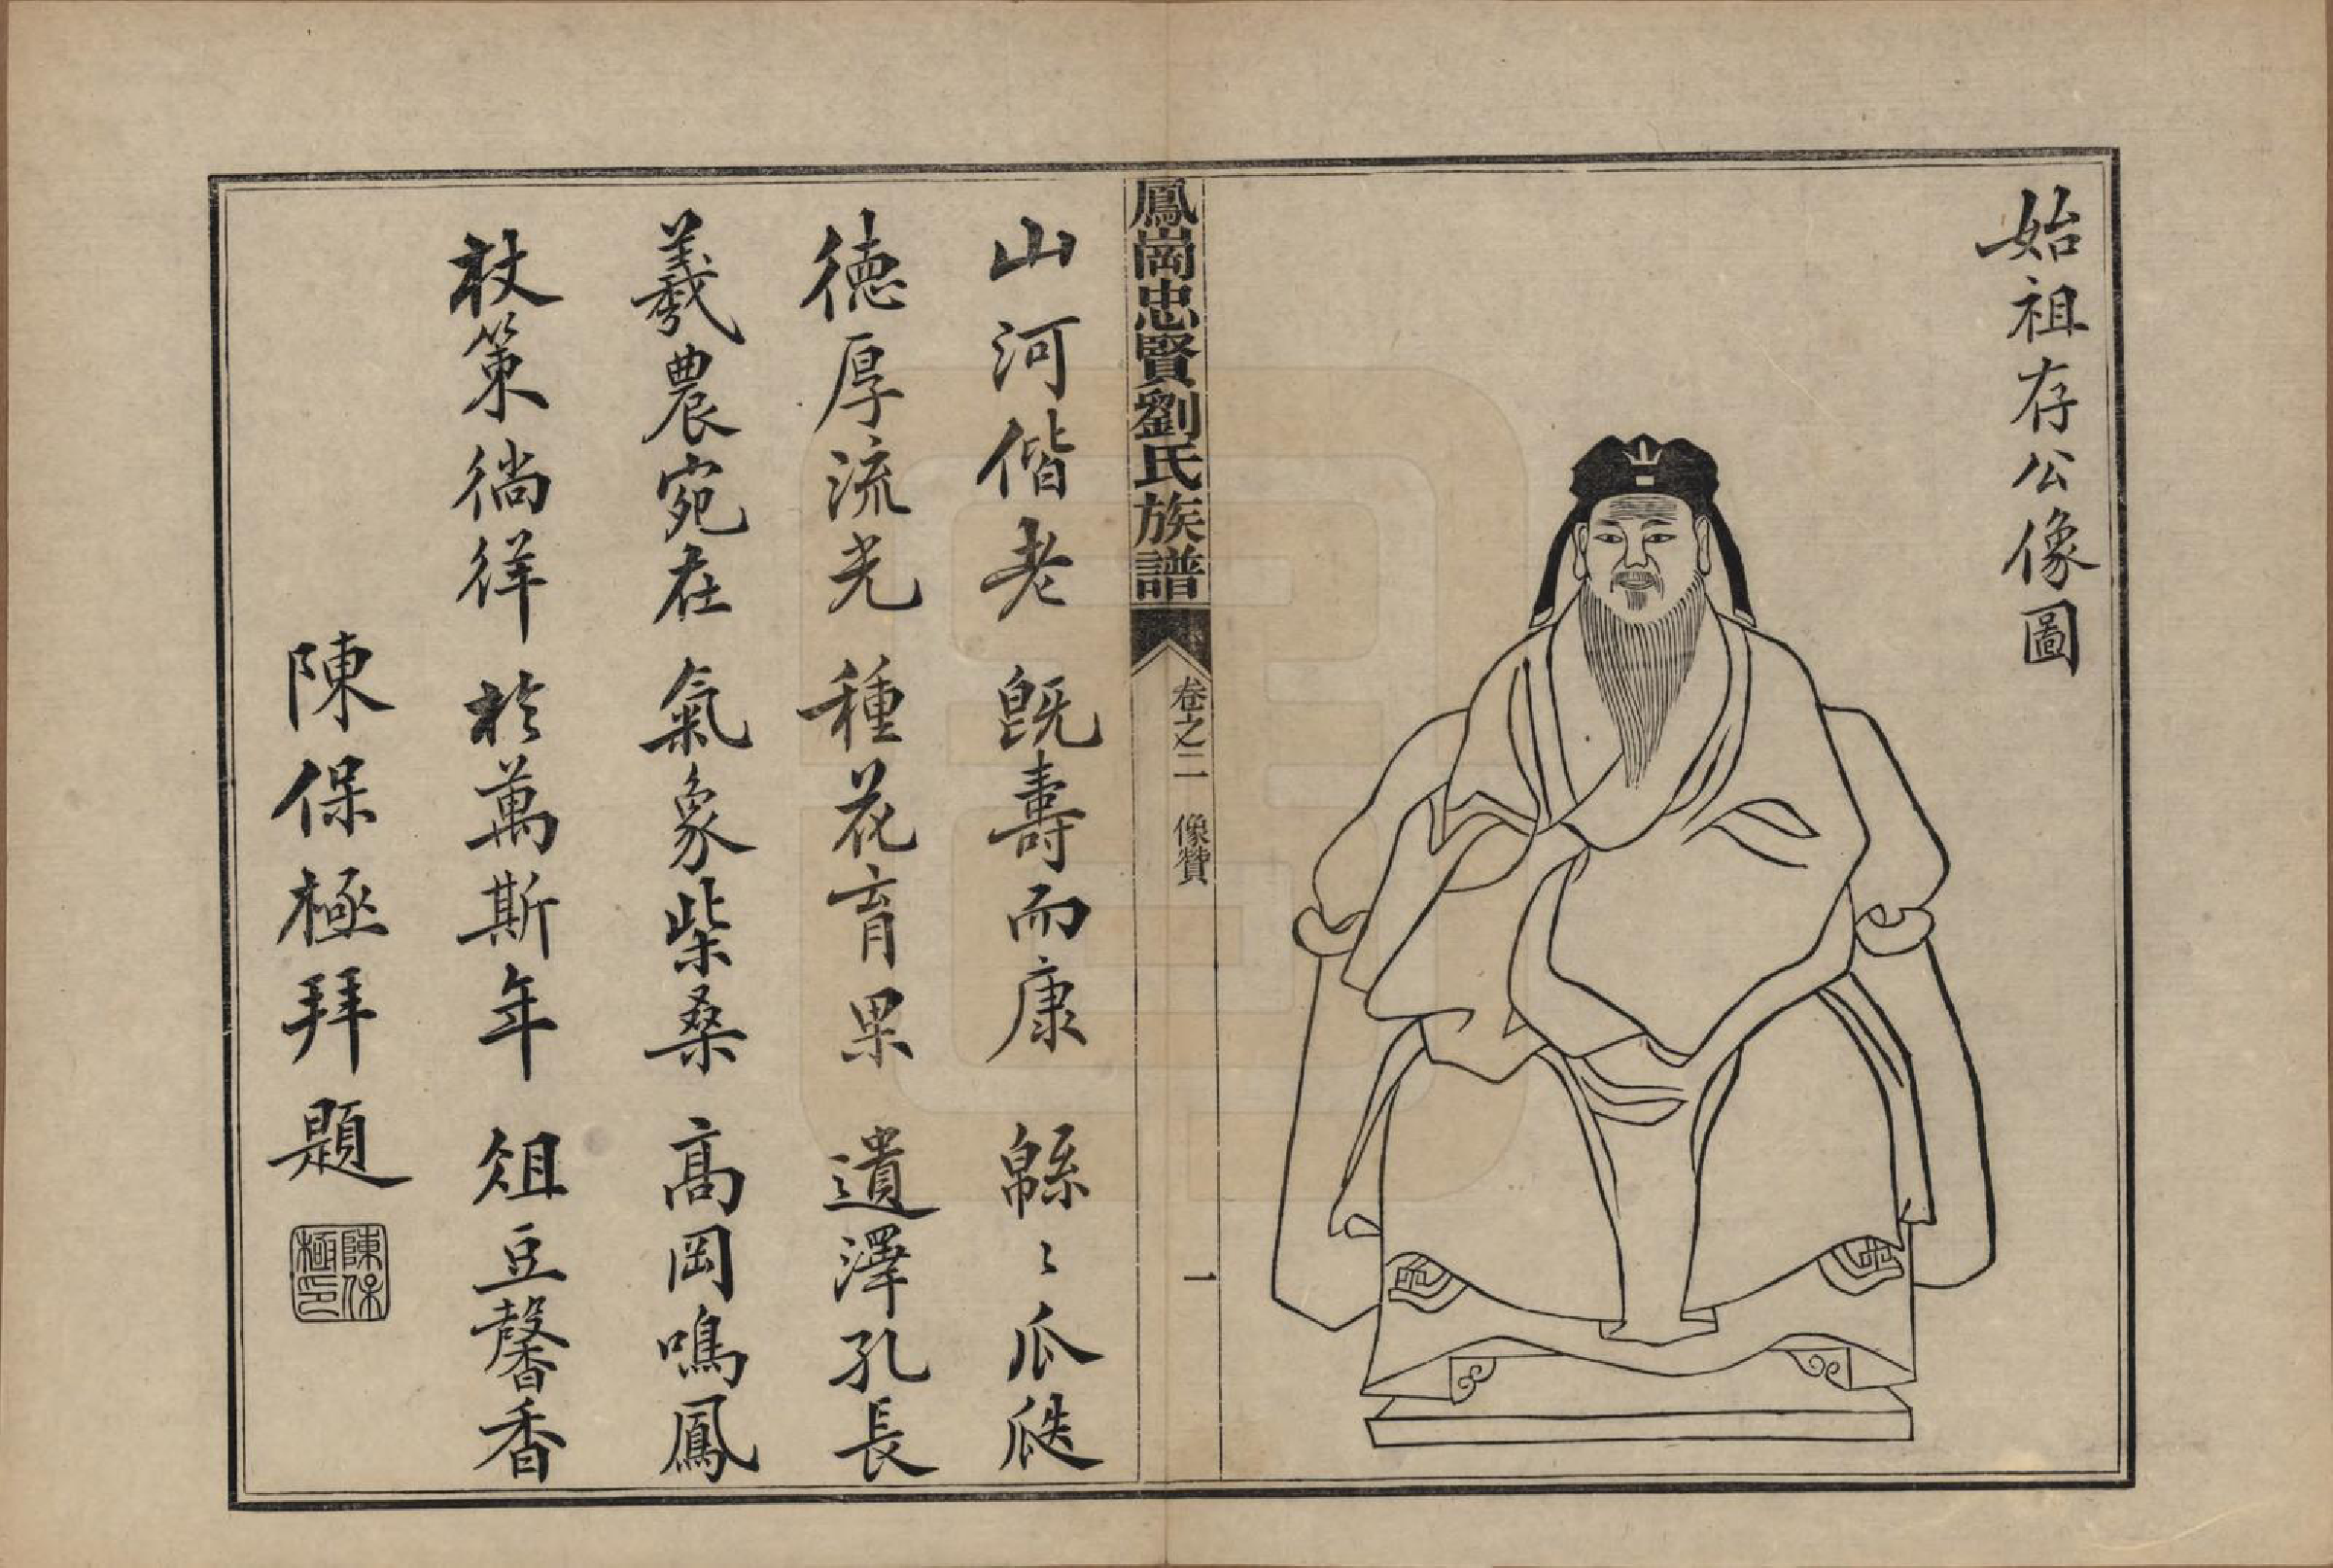 始祖存公像圖
鳳崗忠賢劉氏族譜 卷之二 像贊 一
山河偕老 旣壽而康 緜〻瓜瓞
德厚流光 種花育果 遺澤孔長
羲農宛在 氣象柴桑 高岡鳴鳳
杖策徜徉 於萬斯年 俎豆馨香
陳保極拜題
陳保極印